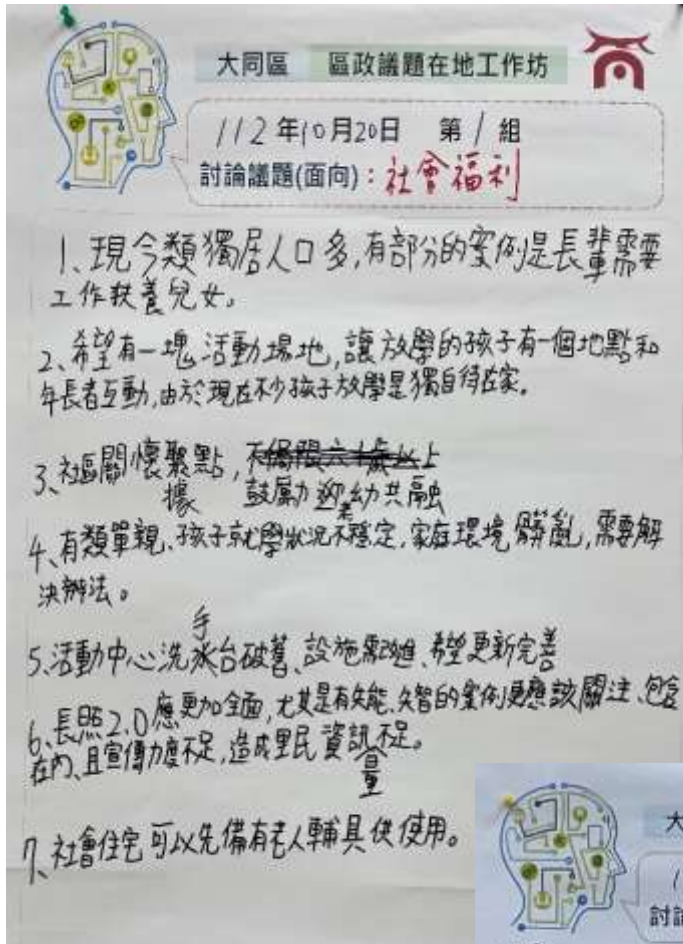 大同區 區政議題在地工作坊
112年10月20日 第1組
討論議題(面向):社會福利
1、現今類獨居人口多,有部分的案例是長輩需要
工作扶養兒女。
2、希望有一塊活動場地,讓放學的孩子有一個地點和
年長者互動,由於現在不少孩子放學是獨自待在家。
3、社區關懷聚點,不侷限六十歲以上
據 鼓勵 老幼共融
4、有類單親、孩子就學狀況不穩定,家庭環境髒亂,需要解
決辦法。
手
5、活動中心洗水台破舊、設施需改進、希望更新完善
6、長照2.0應更加全面,尤其是有失能、失智的案例更應該關注、包含
在內、且宣傳力度不足,造成里民資訊不足。
量
7、社會住宅可以先備有老人輔具供使用。
大
討論